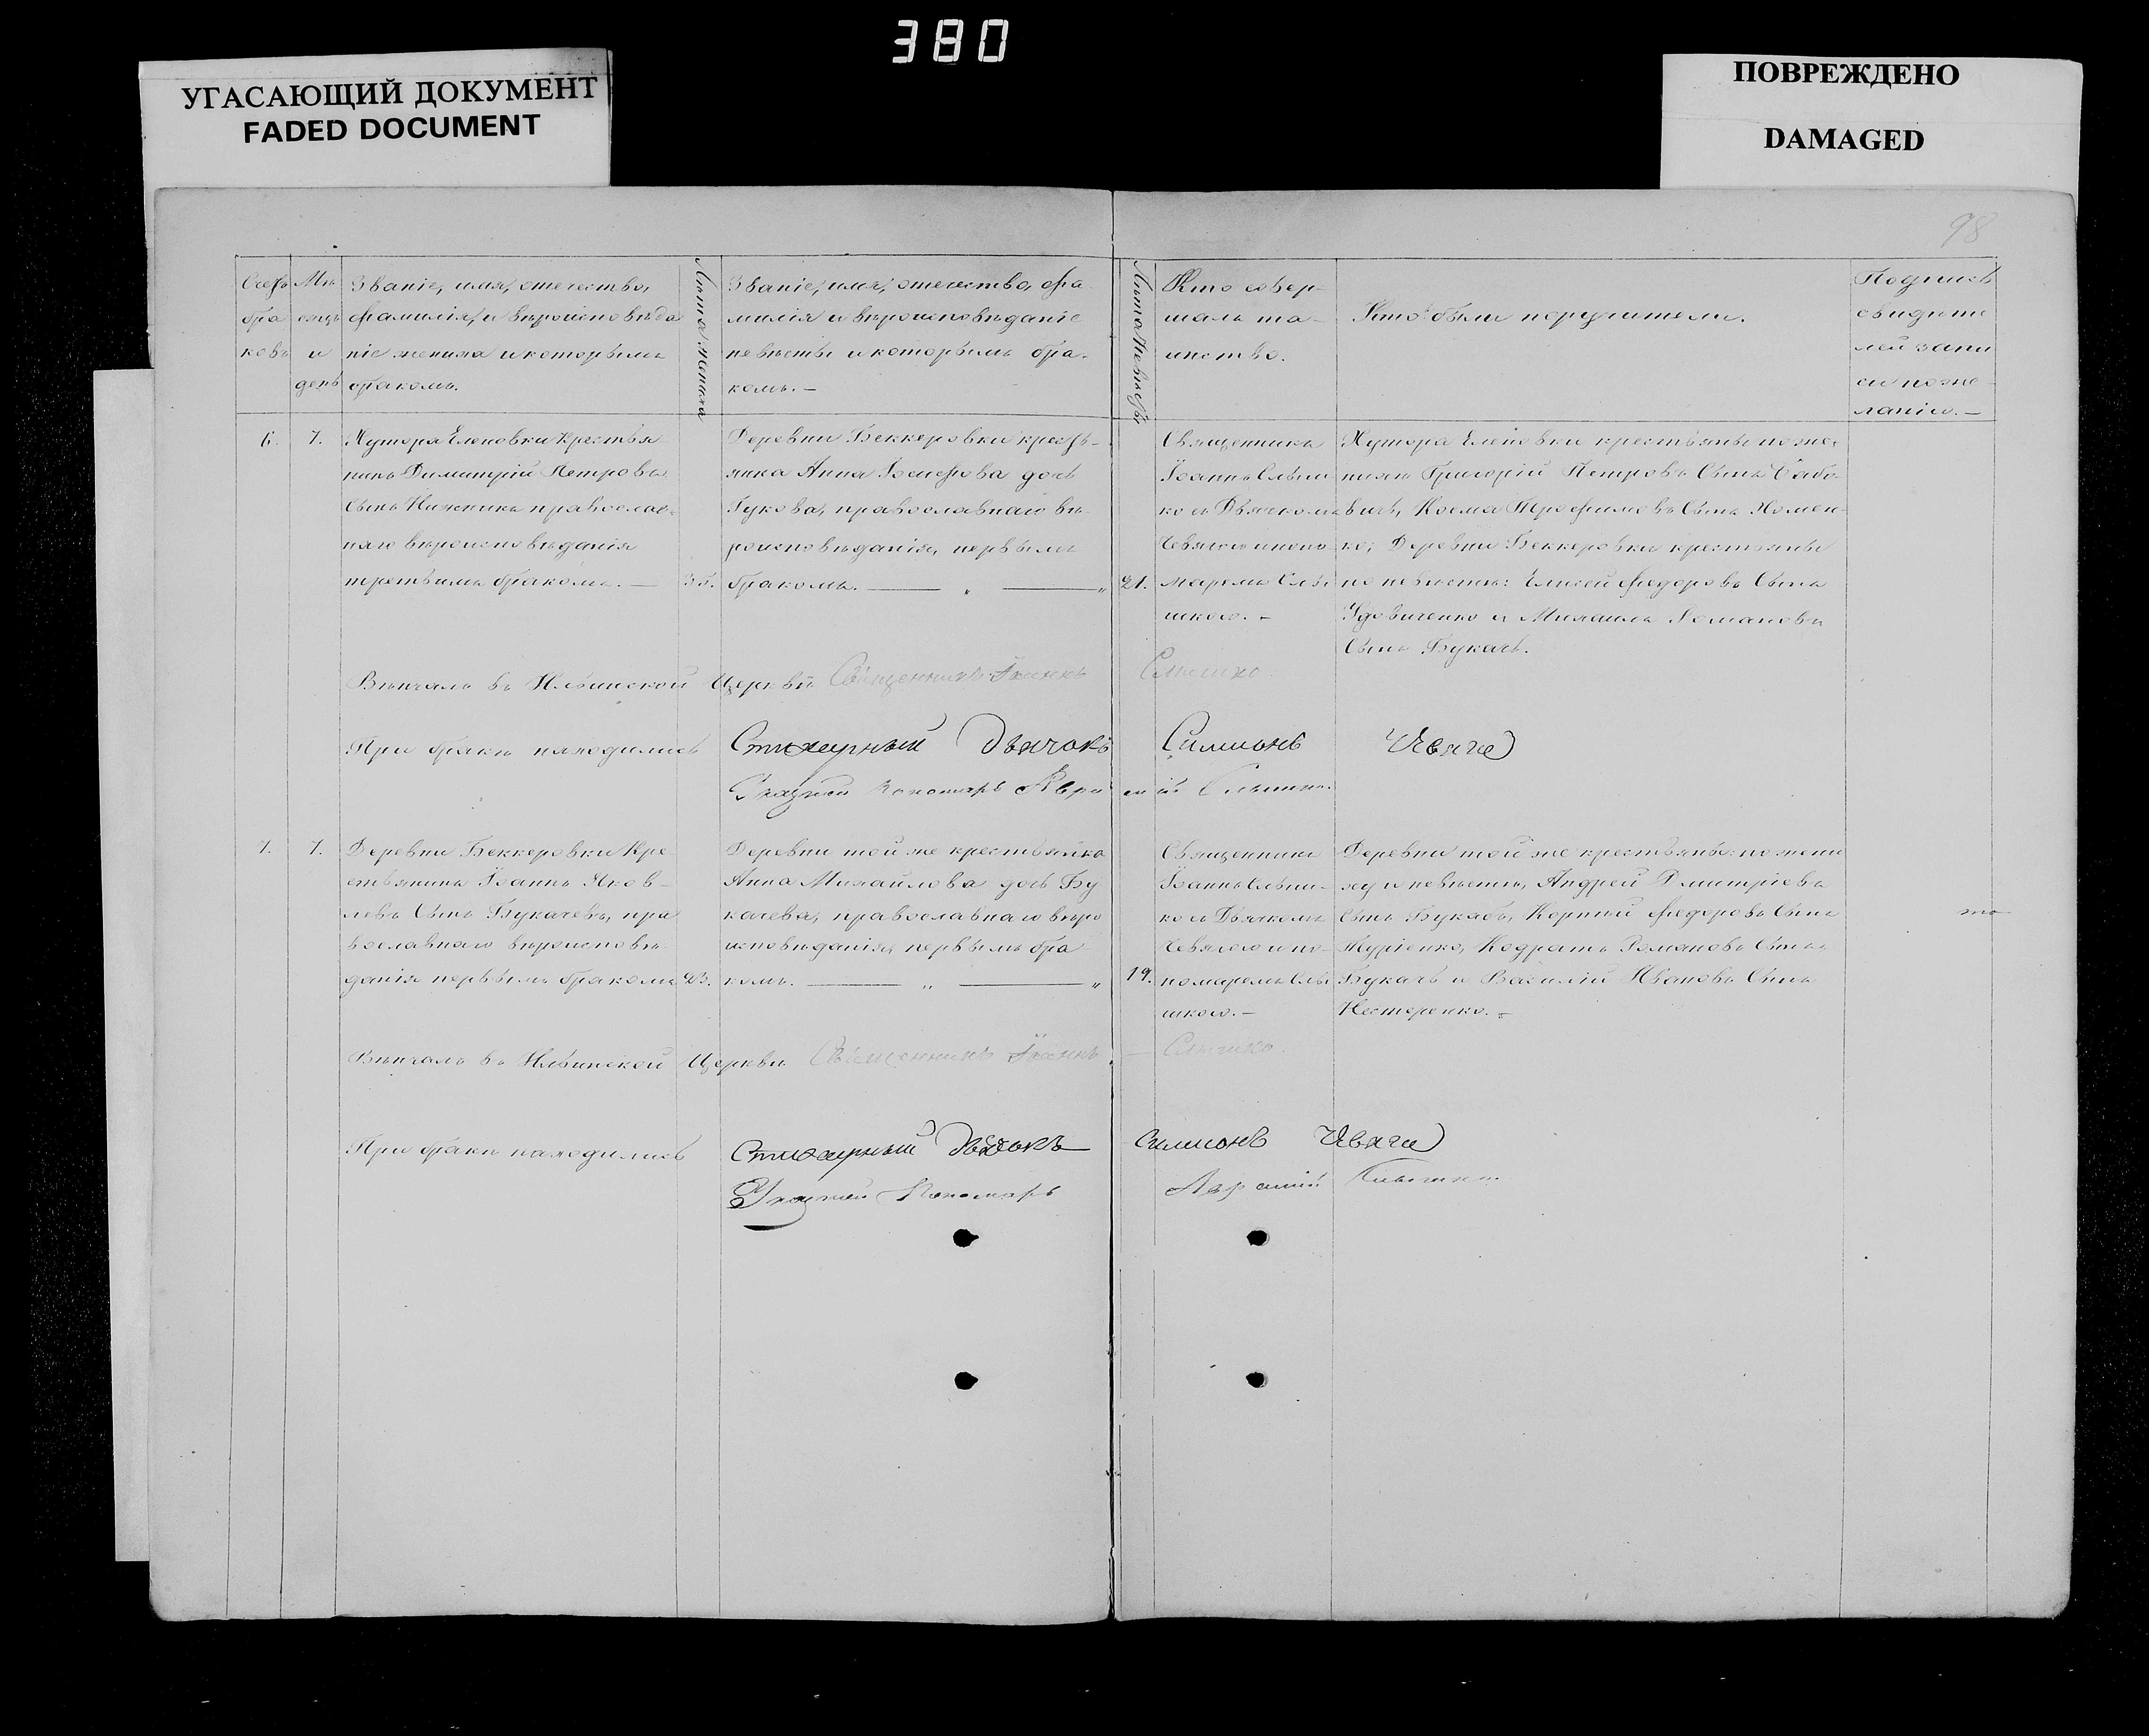 380
УГАСАЮЩИЙ ДОКУМЕНТ
FADED DOCUMENT
ПОВРЕЖДЕНО
DAMAGED
98
Счетъ браковъ
Мѣсяцъ и день
Званіе, имя, отчество,
фамилія, и вѣроисповѣда
ніе жениха и которымъ
бракомъ.
Лѣта жениха
Званіе, имя, отчество, фа-
милія и вѣроисповѣданіе
невѣсты и которымъ бра-
комъ.—
Лѣта невѣсты
Кто совер-
шалъ та-
инство.
Кто были поручители.
Подпись
свидѣте
лей запи
си по же
ланію.—
6.
7.
Хутора Еленовки крестья
нинъ Димитрій Петровъ
Сынъ Нижникъ православ-
наго вѣроисповѣданія
третьимъ бракомъ.—
35.
Деревни Беккеровки кресть-
янка Анна дочь
Гукова, православнаго вѣ-
роисповѣданія, первымъ
бракомъ.—
21.
Священникъ
Іоаннъ Слѣши
ко съ Дьячкомъ
Чевягою и поно
маремъ Слѣ
шкою.—
Хутора Еленовки крестьяне по же-
нихѣ Григорій Петровъ Сынъ
Козма Трофимовъ Сынъ Хомен-
ко; Деревни Беккеровки крестьяне
по невѣстѣ: Елисей Федоровъ Сынъ
Удовиченко и Михаилъ Романовъ
Сынъ Букачъ.
Вѣнчалъ въ Церкви Священникъ Іоаннъ Слѣшко
При бракѣ находились Стихарный Дьячокъ Симионъ Чевяга
Пономарь
7.
7.
Деревни Беккеровки Кре
стьянинъ Іоаннъ Яков-
левъ Сынъ Букачевъ, пра
вославнаго вѣроисповѣ-
данія первымъ бракомъ
23.
Деревни той же крестьянка
Анна Михайлова дочь Бу
качева, православнаго вѣро
исповѣданія, первымъ бра
комъ.—
19.
Священникъ
Іоаннъ Слѣши-
ко съ Дьячкомъ
Чевягою и по-
номаремъ Слѣ
шкою.—
Деревни той же крестьяне: по жени
ху и невѣстѣ, Андрей Дмитріевъ
Сынъ Букачъ, Корній Федоровъ Сынъ
Кодратъ Романовъ Сынъ
Букачъ и Василій Ивановъ Сынъ
Нестеренко.—
Вѣнчалъ въ Церкви Священникъ Іоаннъ Слѣшко
При бракѣ находились Стихарный Дьячокъ Симионъ Чевяга
Пономарь